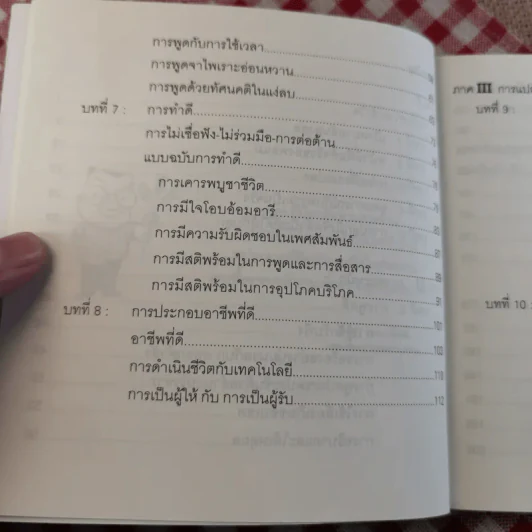 การพูดกับการใช้เวลา
การพูดจาไพเราะอ่อนหวาน
การพูดด้วยทัศนคติในแง่ลบ
บทที่ 7 : การทำดี
การไม่เชื่อฟัง-ไม่ร่วมมือ-การต่อต้าน
แบบฉบับการทำดี
การเคารพบูชาชีวิต
การมีใจโอบอ้อมอารี
การมีความรับผิดชอบในเพศสัมพันธ์
การมีสติพร้อมในการพูดและการสื่อสาร
การมีสติพร้อมในการอุปโภคบริโภค
บทที่ 8 : การประกอบอาชีพที่ดี 101
อาชีพที่ดี 103
การดำเนินชีวิตกับเทคโนโลยี
การเป็นผู้ให้ กับ การเป็นผู้รับ 112
ภาค III การแปล
บทที่ 9 :
บทที่ 10 :